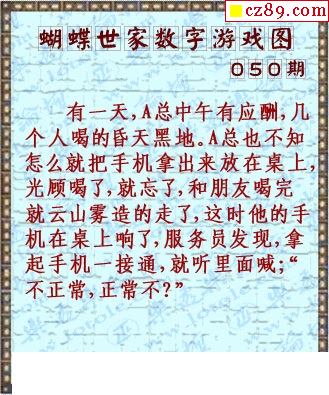 cz89.com
蝴蝶世家数字游戏图
050期
有一天,A总中午有应酬,几
个人喝的昏天黑地。A总也不知
怎么就把手机拿出来放在桌上,
光顾喝了,就忘了,和朋友喝完
就云山雾造的走了,这时他的手
机在桌上响了,服务员发现,拿
起手机一接通,就听里面喊;“
不正常,正常不?”